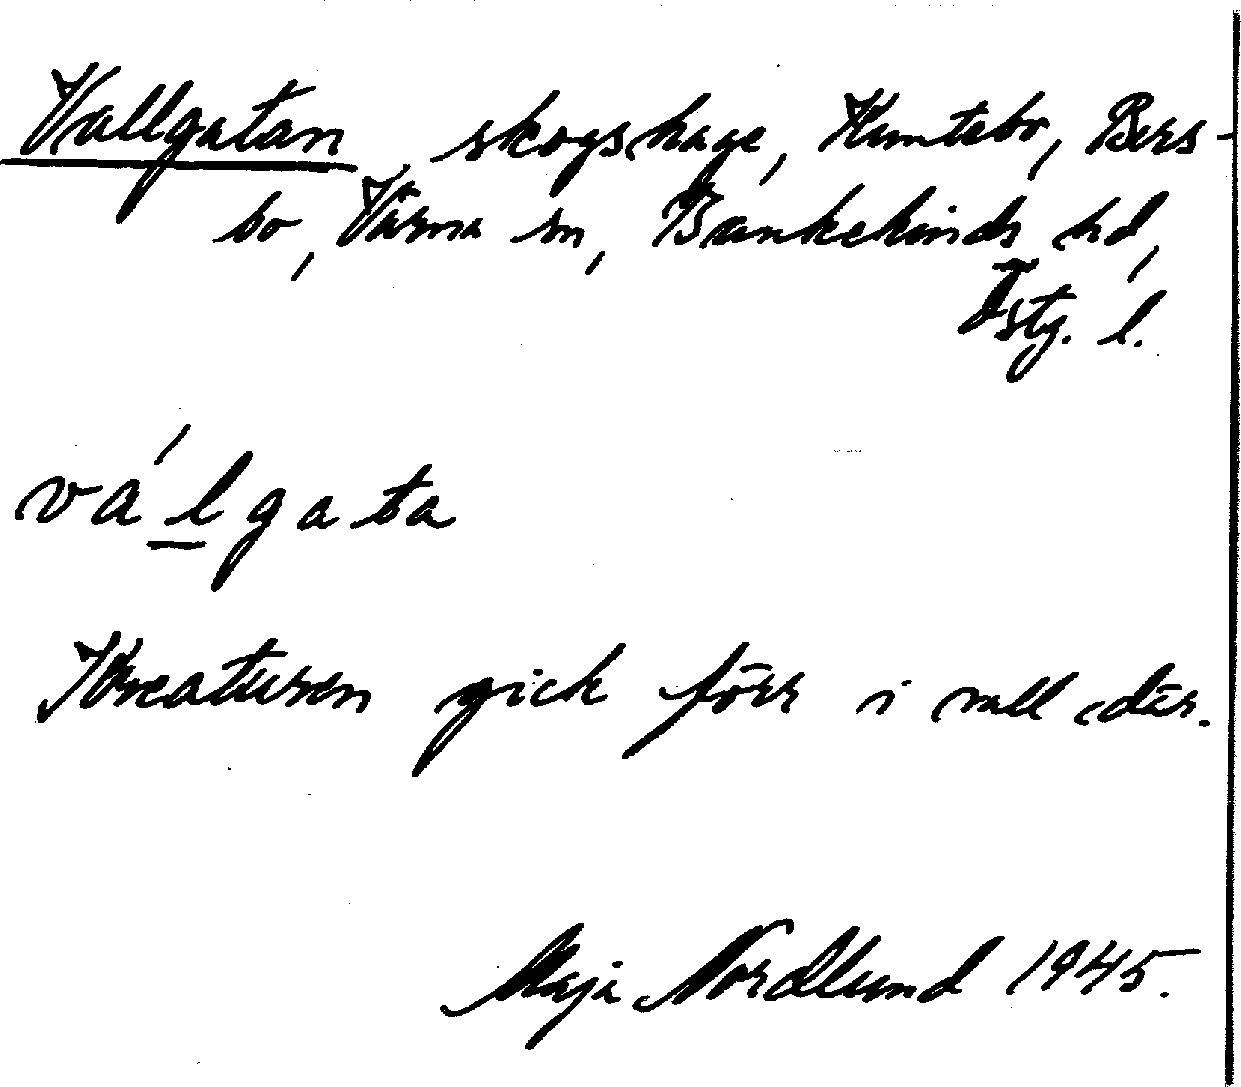 Vallgatan, skogshage, Humtebo, Bers-
bo, Värna sn, Bankekinds hd,
Östg. l.
va´lgata
Kreaturen gick förr i vall där.
Maja Nordlund 1945.